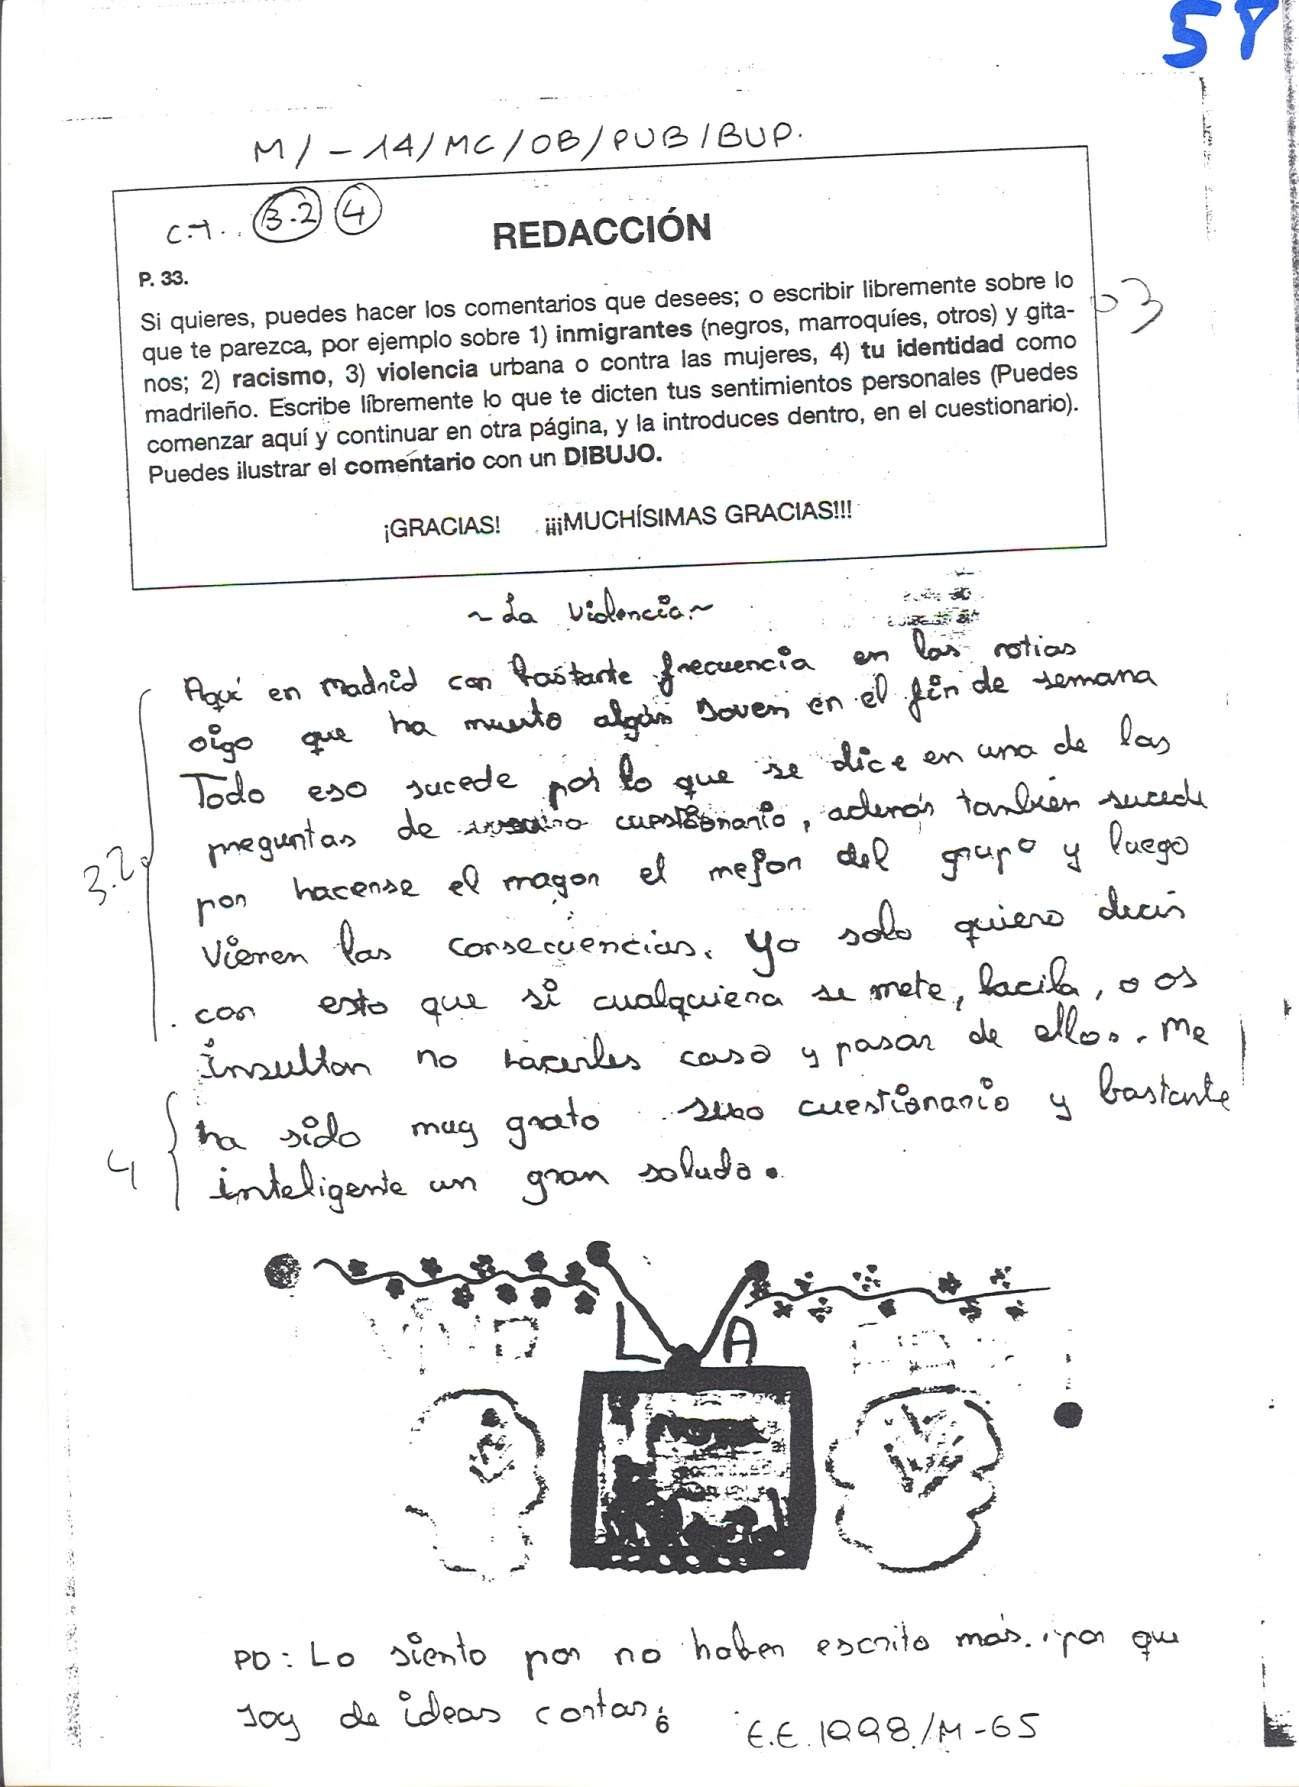 54
M/-14/MC/OB/PUB/BUP.
C.1.. 3.2 4
REDACCIÓN
P. 33.
Si quieres, puedes hacer los comentarios que desees; o escribir libremente sobre lo
que te parezca, por ejemplo sobre 1) inmigrantes (negros, marroquíes, otros) y gita-
nos; 2) racismo, 3) violencia urbana o contra las mujeres, 4) tu identidad como
madrileño. Escribe líbremente lo que te dicten tus sentimientos personales (Puedes
comenzar aquí y continuar en otra página, y la introduces dentro, en el cuestionario).
Puedes ilustrar el comentario con un DIBUJO.
¡GRACIAS! ¡¡¡MUCHÍSIMAS GRACIAS!!!
03
~ La Violencia ~
Aquí en Madrid con bastante frecuencia en las notias
oigo que ha muerto algún joven en el fin de semana
Todo eso sucede por lo que se dice en una de las
preguntas de cuestionario, además también sucede
por hacerse el mayor el mejor del grupo y luego
3.2
vienen las consecuencias. Yo solo quiero decir
con esto que si cualquiera se mete, bacila, o os
insultan no hacerles caso y pasar de ellos. Me
ha sido muy grato cuestionario y bastante
4
inteligente un gran saludo.
L A
PD: Lo siento por no haber escrito más. por que
soy de ideas cortas
6
E.E. 1998/M-65